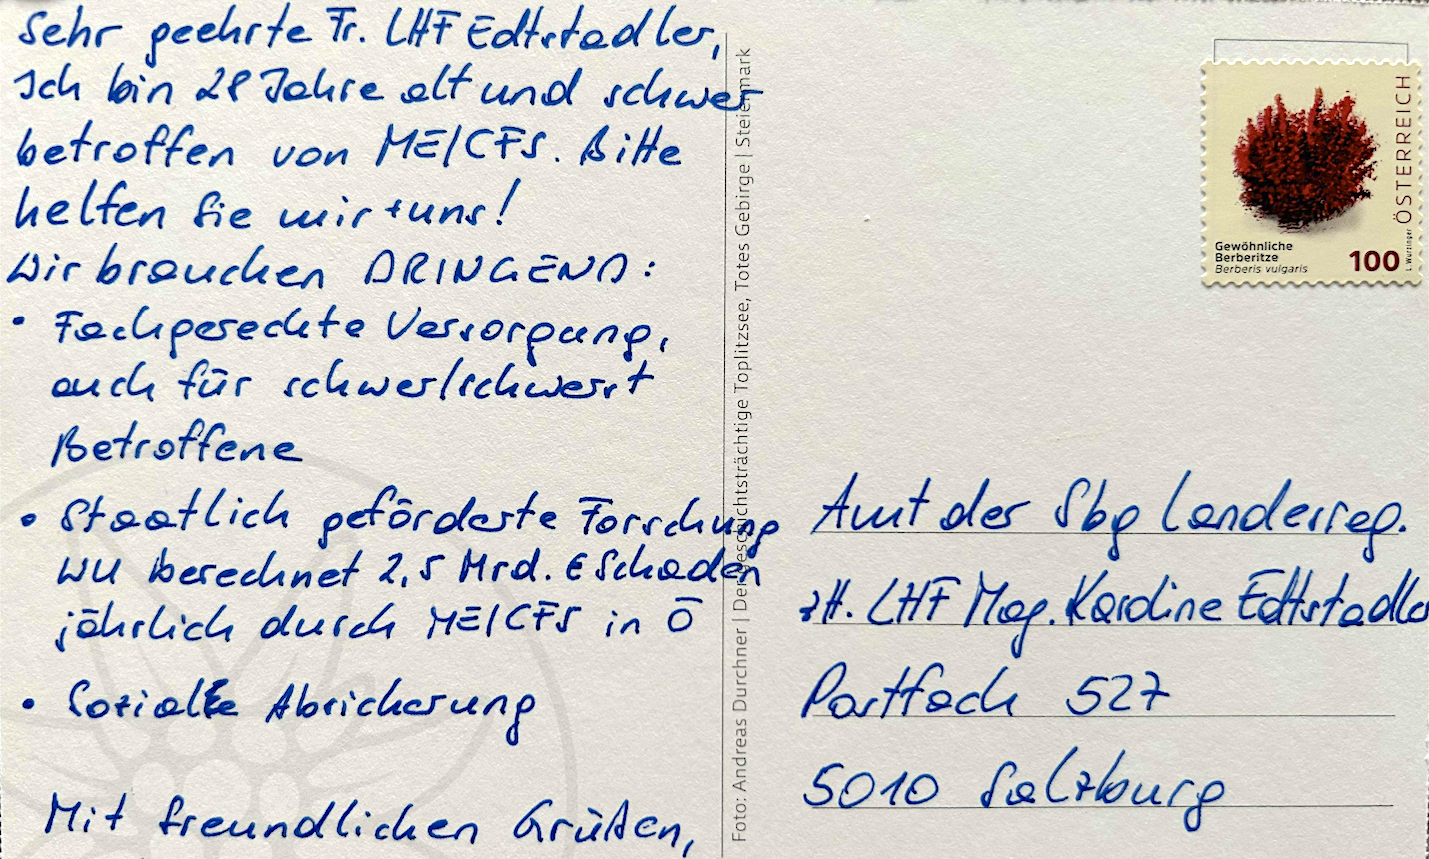 Sehr geehrte Fr. LHF Edtstadler,
Ich bin 28 Jahre alt und schwer
betroffen von ME/CFS. Bitte
helfen Sie mir + uns!
Wir brauchen DRINGEND:
• Fachgerechte Versorgung,
auch für schwer/schwerst
Betroffene
• Staatlich geförderte Forschung
WU berechnet 2,5 Mrd. € Schaden
jährlich durch ME/CFS in Ö
• Soziale Absicherung
Mit freundlichen Grüßen,
Foto: Andreas Durchner | Der geschichtsträchtige Toplitzsee, Totes Gebirge | Steiermark
ÖSTERREICH
Gewöhnliche
Berberitze
Berberis vulgaris
100
L. Wurzinger
Amt der Sbg Landesreg.
zH. LHF Mag. Karoline Edtstadler
Postfach 527
5010 Salzburg